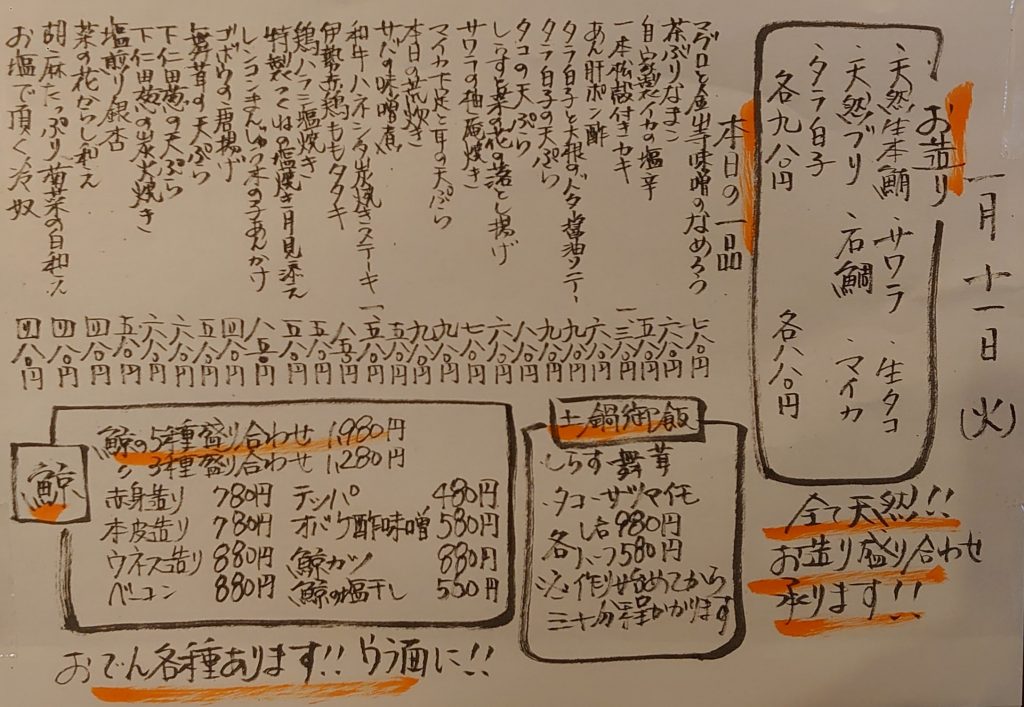 一月十一日(火)
お造り
・天然生本鮪 ・サワラ ・生タコ
・天然ブリ ・石鯛 ・マイカ
・タラ白子
各九八〇円 各八八〇円
全て天然!!
お造り盛り合わせ
承ります!!
本日の一品
マグロと金山寺味噌のなめろう 七八〇円
茶ぶりなまこ 六八〇円
自家製イカの塩辛 五八〇円
一本松殻付きカキ 一三〇円
あん肝ポン酢 六八〇円
タラ白子と大根のバター醤油ソテー 九八〇円
タラ白子の天ぷら 九八〇円
タコの天ぷら 八八〇円
しらすと菜の花の落とし揚げ 六八〇円
サワラの柚庵焼き 七八〇円
マイカ下足と耳の天ぷら 九八〇円
本日の荒炊き 九八〇円
サバの味噌煮 五八〇円
和牛ハネシタ炭焼きステーキ 一五八〇円
伊勢赤鶏ももタタキ 八五〇円
鶏ハラミ塩焼き 五八〇円
特製つくねの塩焼き月見添え 五八〇円
レンコンまんじゅう木の子あんかけ 八五〇円
ゴボウの唐揚げ 四八〇円
舞茸の天ぷら 五八〇円
下仁田葱の天ぷら 六八〇円
下仁田葱の炭火焼き 六八〇円
塩煎り銀杏 五八〇円
菜の花からし和え 四八〇円
胡麻たっぷり菊菜の白和え 四八〇円
お塩で頂く冷奴 四八〇円
土鍋御飯
しらす舞茸
タコ・サツマイモ
各 一合980円
ハーフ580円
※作り始めてから
三十分程かかります
鯨
鯨の5種盛り合わせ 1,980円
〃 3種盛り合わせ 1,280円
赤身造り 780円 テッパ 480円
本皮造り 780円 オバケ酢味噌 580円
ウネス造り 880円 鯨カツ 880円
ベーコン 880円 鯨の塩干し 550円
おでん各種あります!! ウラ面に!!